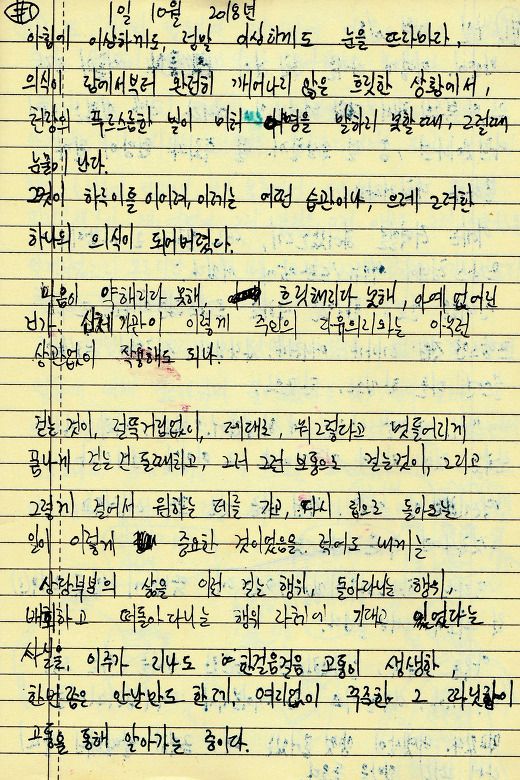 #1
1일 10월 2018년
아침에 이상하게도, 정말 이상하게도 눈을 뜨자마자,
의식이 잠에서부터 완전히 깨어나지 않은 흐릿한 상황에서,
천장의 푸르스름한 빛이 미처 여명을 발하지 못할 때, 그럴때
눈물이 난다.
그것이 하루이틀 이어져, 이제는 어떤 습관이나, 으레 그러한
하나의 의식이 되어버렸다.
마음이 약해지다 못해, 흐릿해지다 못해, 아예 없어진
건가. 신체기관이 이렇게 주인의 자유의지와는 아무런
상관없이 작동해도 되나.
걷는 것이, 절뚝거림없이, 제대로, 뭐그렇다고 멋들어지게
폼나게 걷는건 둘째치고, 그저 그런 보통으로 걷는것이, 그리고
그렇게 걸어서 원하는 데를 가고, 다시 집으로 돌아오는
일이 이렇게 중요한 것이었음을. 적어도 내게는
상당부분의 삶을 이런 걷는 행위, 돌아다니는 행위,
배회하고 떠돌아다니는 행위 자체에 기대고 있었다는
사실을, 이주가 지나도 한걸음걸음 고통이 생생한,
한번쯤은 안날만도 한데, 여지없이 꾸준한 그 짜릿함이
고통을 통해 알아가는 중이다.